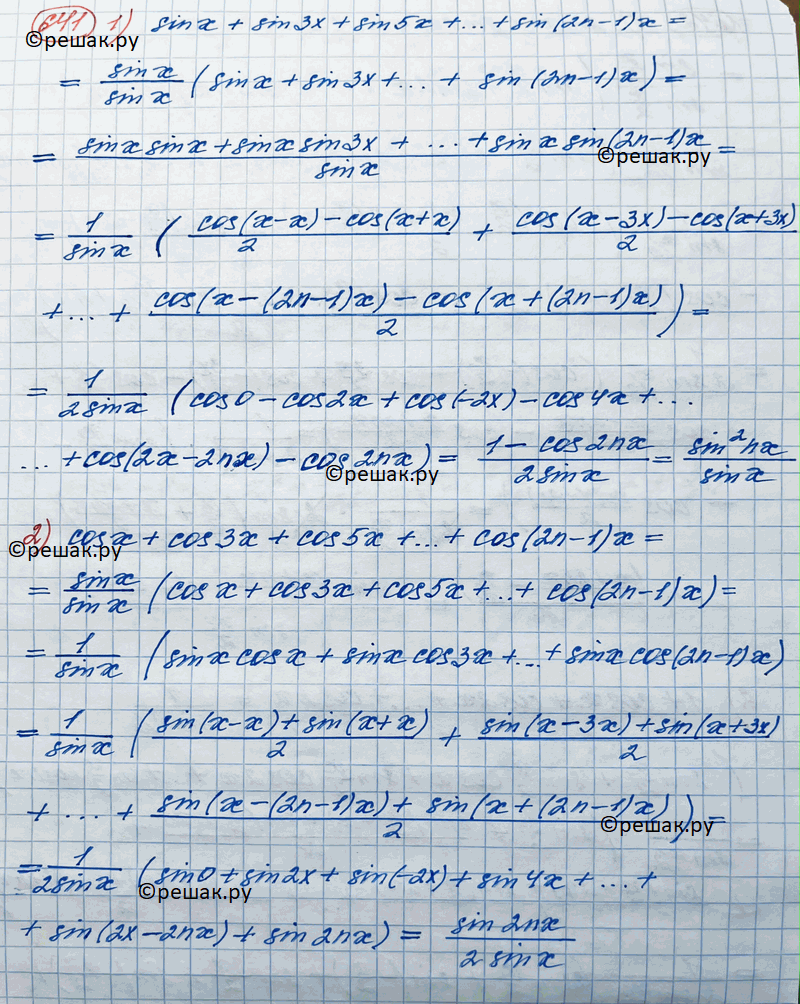 641 1) sin x + sin 3x + sin 5x + ... + sin (2n-1)x =
©решак.ру
= sin x / sin x (sin x + sin 3x + ... + sin (2n-1)x) =
= (sin x sin x + sin x sin 3x + ... + sin x sin (2n-1)x) / sin x =
©решак.ру
= 1 / sin x ( (cos(x-x) - cos(x+x)) / 2 + (cos(x-3x) - cos(x+3x)) / 2
+ ... + (cos(x-(2n-1)x) - cos(x+(2n-1)x)) / 2 ) =
= 1 / 2 sin x (cos 0 - cos 2x + cos(-2x) - cos 4x + ...
... + cos(2x-2nx) - cos 2nx) = (1 - cos 2nx) / 2 sin x = sin² nx / sin x
©решак.ру
2) cos x + cos 3x + cos 5x + ... + cos (2n-1)x =
©решак.ру
= sin x / sin x (cos x + cos 3x + cos 5x + ... + cos (2n-1)x) =
= 1 / sin x (sin x cos x + sin x cos 3x + ... + sin x cos (2n-1)x)
= 1 / sin x ( (sin(x-x) + sin(x+x)) / 2 + (sin(x-3x) + sin(x+3x)) / 2
+ ... + (sin(x-(2n-1)x) + sin(x+(2n-1)x)) / 2 ) =
©решак.ру
= 1 / 2 sin x (sin 0 + sin 2x + sin(-2x) + sin 4x + ... +
©решак.ру
+ sin(2x-2nx) + sin 2nx) = sin 2nx / 2 sin x